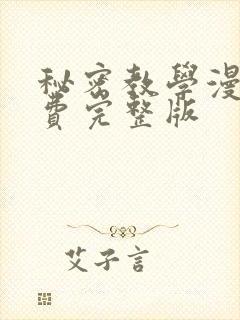 秘密教學漫
費完整版
艾子言